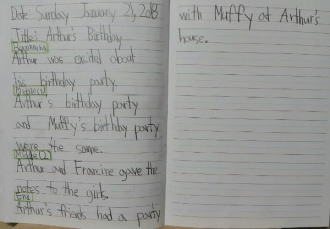 Date: Sunday January 21, 2018
Title: Arthur's Birthday
Beginning
Arthur was excited about
his birthday party.
Arthur's birthday party
and Muffy's birthday party
were the same.
Middle
Arthur and Francine gave the
notes to the girls.
End
Arthur's friends had a party
with Muffy at Arthur's
house.